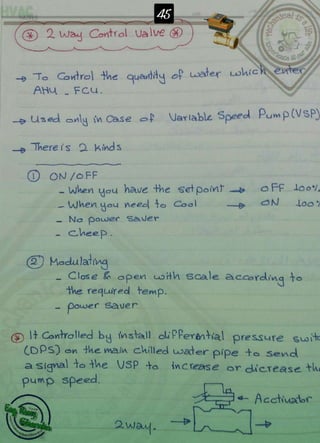 HVAC
45
* 2 way Control valve *
→ To Control the quantity of water which enter
AHU _ FCU.
→ Used only in Case of Variable Speed Pump (VSP)
→ There is 2 kinds
① ON/OFF
- When you have the setpoint → OFF 100%
- When you need to Cool → ON 100%
- No power saver
- cheep.
② Modulating
- Close & open with scale according to
the required temp.
- power saver
* It Controlled by install differential pressure switc
(DPS) on the main chilled water pipe to send
a signal to the VSP to increase or dicrease the
pump speed.
Acctivator
2way.